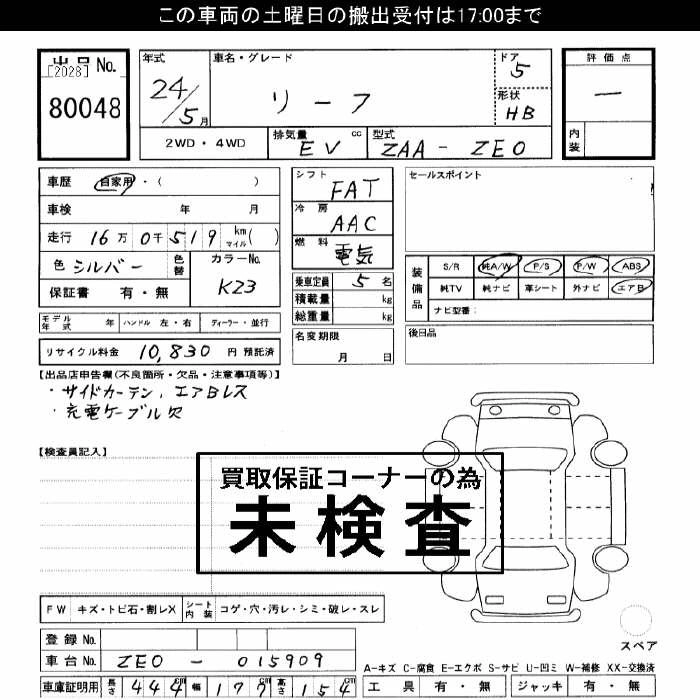 この車両の土曜日の搬出受付は17:00まで
出品No.
[2028]
80048
年式
24/5月
車名・グレード
リーフ
ドア
5
形状
HB
評価点
―
内装
2WD・4WD
排気量 cc
EV
型式
ZAA-ZE0
車歴 自家用・( )
車検 年 月
走行 16万0千519km( )
マイル
色 シルバー
色替
カラーNo.
K23
保証書 有・無
シフト
FAT
冷房
AAC
燃料
電気
乗車定員 5名
積載量 kg
総重量 kg
セールスポイント
装備品
S/R 純A/W P/S P/W ABS
純TV 純ナビ 革シート 外ナビ エアB
ナビ型番:
モデル年式 年 ハンドル 左・右 ディーラー・並行
名変期限
月 日
後日品
リサイクル料金 10,830 円 預託済
【出品店申告欄(不良箇所・欠品・注意事項等)】
・サイドカーテン、エアBレス
・充電ケーブル欠
【検査員記入】
買取保証コーナーの為
未検査
FW キズ・トビ石・割レX シート内装 コゲ・穴・汚レ・シミ・破レ・スレ
登録No.
車台No. ZE0-015909
スペア
A-キズ C-腐食 E-エクボ S-サビ U-凹ミ W-補修 XX-交換済
車庫証明用 長さ 444cm 幅 177cm 高さ 154cm
工具 有・無 ジャッキ 有・無